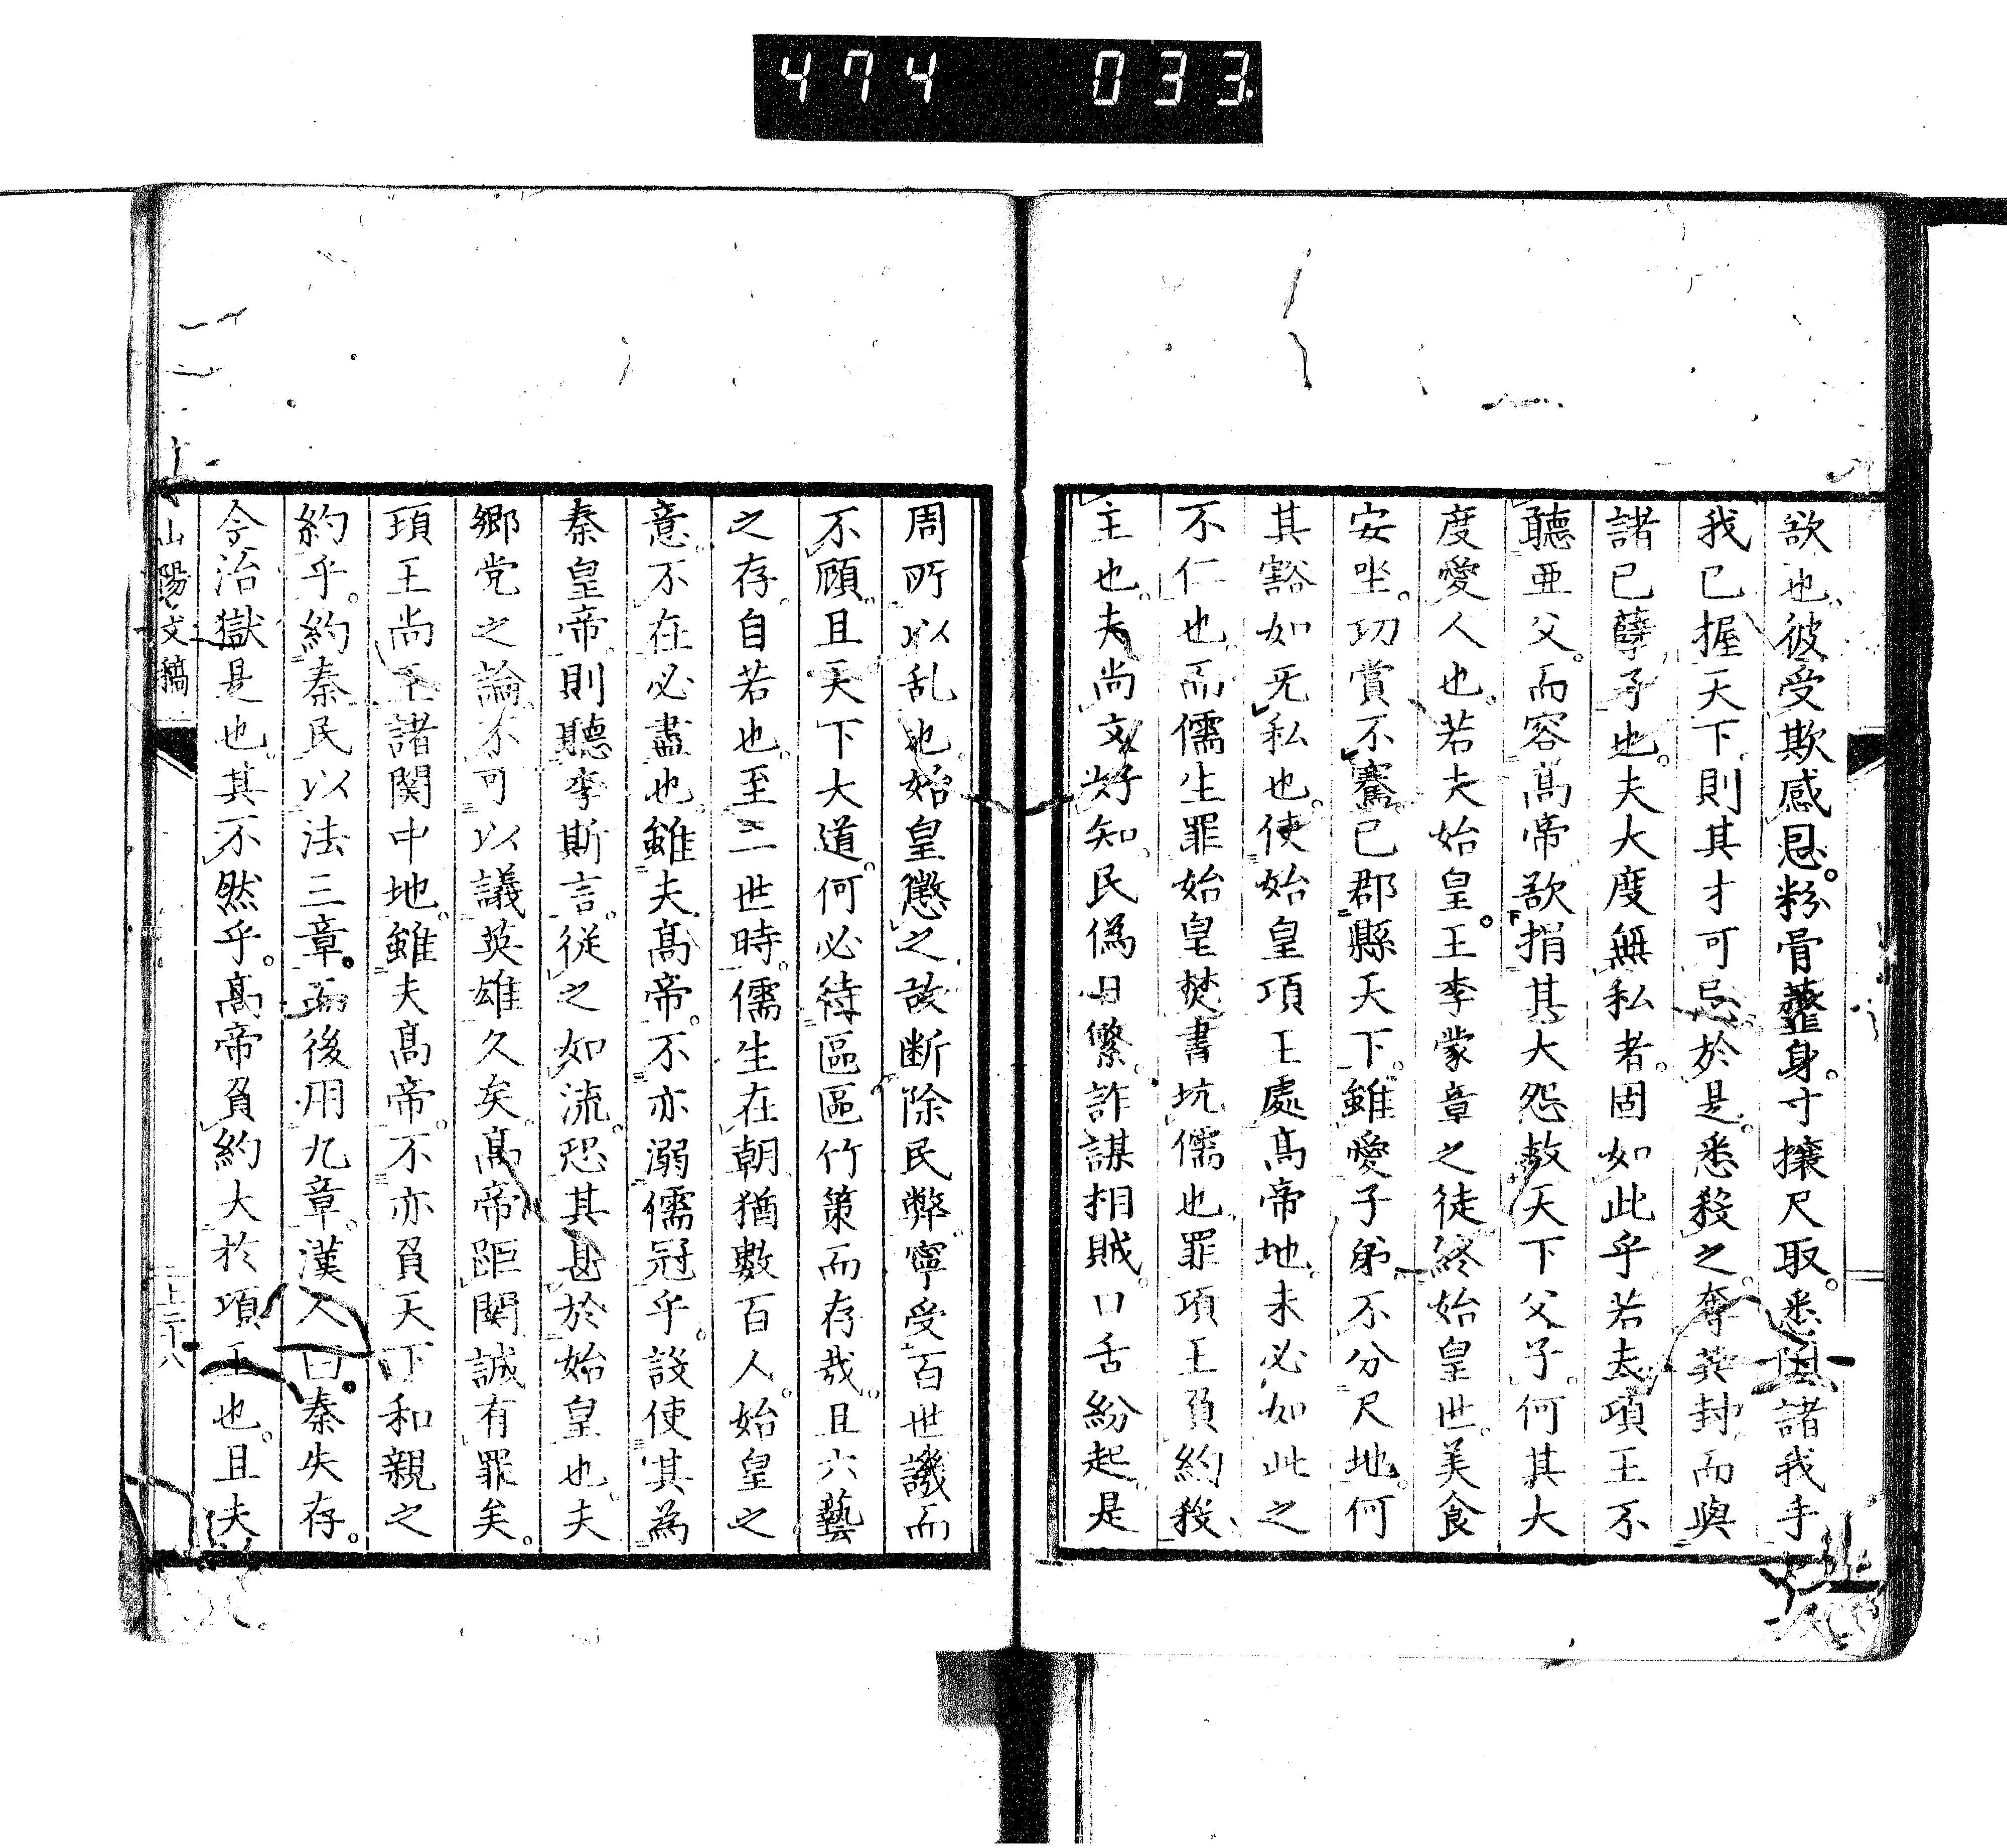 474 033
欲也。彼受欺感恩。粉骨虀身。寸攘尺取。悉因諸我手
我已握天下。則其才可忌於是。悉殺之。奪其封而與
諸已孽子也。夫大度無私者。固如此乎。若夫項王不
聽亜父。而容髙帝。欲捐其大怨救天下父子。何其大
度愛人也。若夫始皇。王李蒙章之徒。終始皇世。美食
安坐。功賞不騫。已郡縣天下。雖愛子弟不分尺地。何
其豁如无私也。使始皇項王處髙帝地。未必如此之
不仁也。而儒生罪始皇焚書坑儒也。罪項王負約殺
主也。夫尚文好知。民偽日繁。詐謀相賊。口舌紛起。是
周所以乱也。始皇懲之。故断除民弊。寧受百世譏而
不顧。且天下大道。何必待區區竹策而存哉。且六藝
之存。自若也。至二世時。儒生在朝猶數百人。始皇之
意。不在必盡也。雖夫髙帝。不亦溺儒冠乎。設使其為
秦皇帝。則聽李斯言。従之如流。恐其甚於始皇也。夫
鄉党之論。不可以議英雄久矣。髙帝距関。誠有罪矣。
項王尚王諸関中地。雖夫髙帝。不亦負天下和親之
約乎。約秦民以法三章。而後用九章。漢人曰。秦失存。
今治獄是也。其不然乎。髙帝負約大於項王也。且夫
山陽文稿